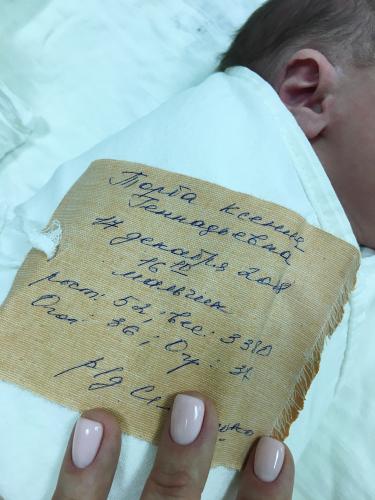 Торба Ксения
Геннадьевна
14 декабря 2018
16
мальчик
рост: 52, вес: 3380
Огол: 36; Огр: 34